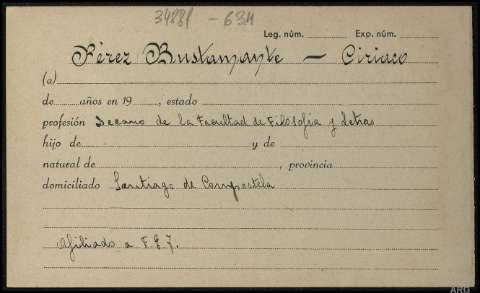 34888 - 634
Leg. núm. Exp. núm.
Pérez Bustamante — Ciriaco
(a)
de años en 19 , estado
profesión Decano de la Facultad de Filosofía y Letras
hijo de y de
natural de , provincia
domiciliado Santiago de Compostela
Afiliado a F.E.T.
ARG